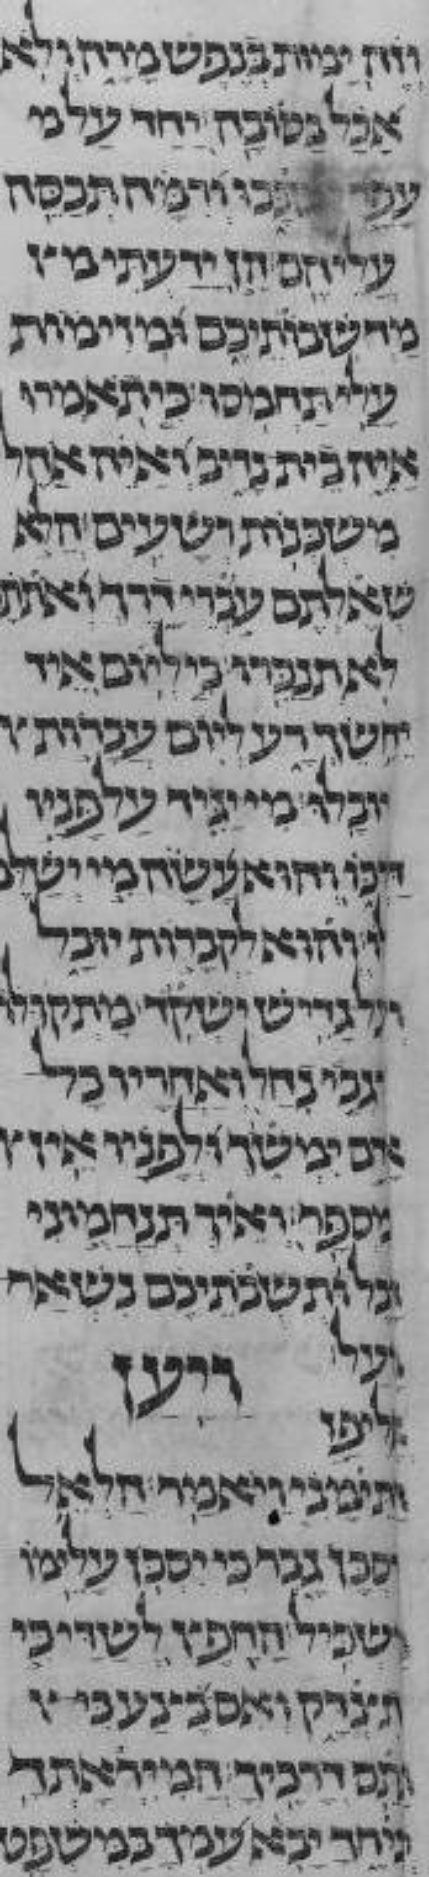 וזה ימות בנפש מרה ולא
אכל בטובה יחד על
עפר ישכבו ורמה תכסה
עליהם הן ידעתי
מחשבותיכם ומזימות
עלי תחמסו כי תאמרו
איה בית נדיב ואיה אהל
משכנות רשעים הלא
שאלתם עברי דרך ואתת
לא תנכרו כי ליום איד
יחשך רע ליום עברות
יובלו מי יגיד על פניו
דרכו והוא עשה מי ישלם
לו והוא לקברות יובל
ועל גדיש ישקד מתקו לו
רגבי נחל ואחריו כל
אדם ימשך ולפניו אין
מספר ואיך תנחמוני
הבל ותשבתיכם נשאר
מעל
ויען
אליפז
התימני ויאמר הלאל
יסכן גבר כי יסכן עלימו
משכיל החפץ לשדי כי
תצדק ואם בצע כי
תתם דרכיך המיראתך
יכיחך יבא עמך במשפט